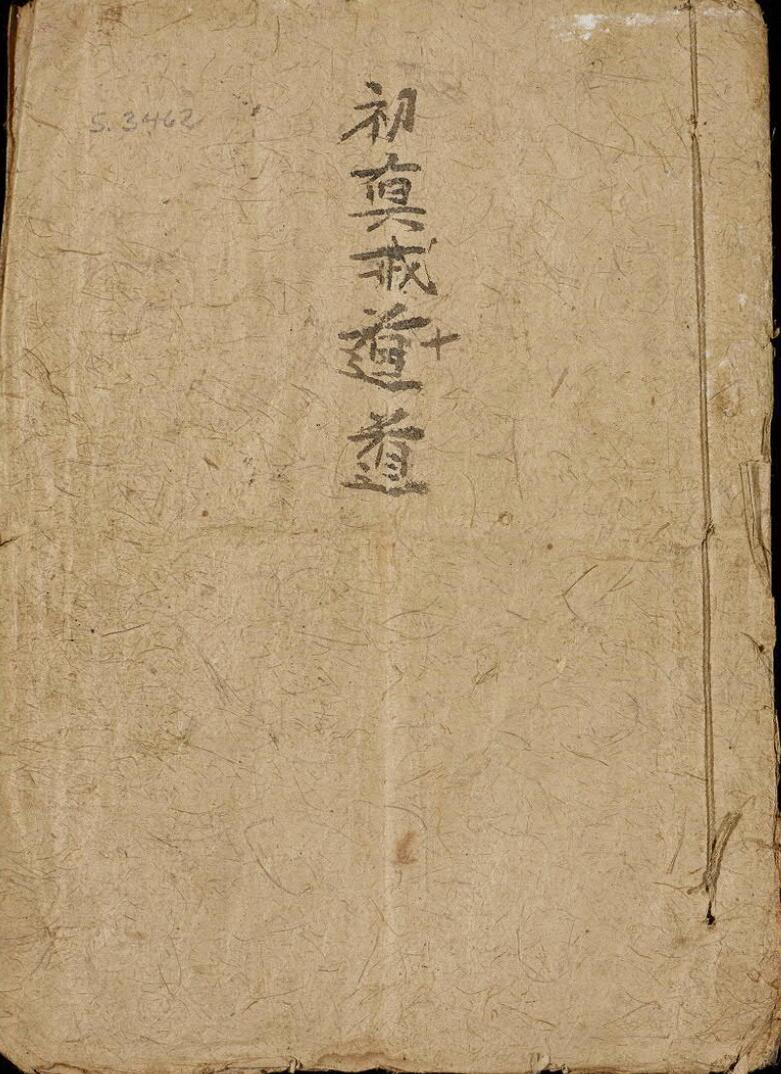 S. 3462
初眞戒道道
十